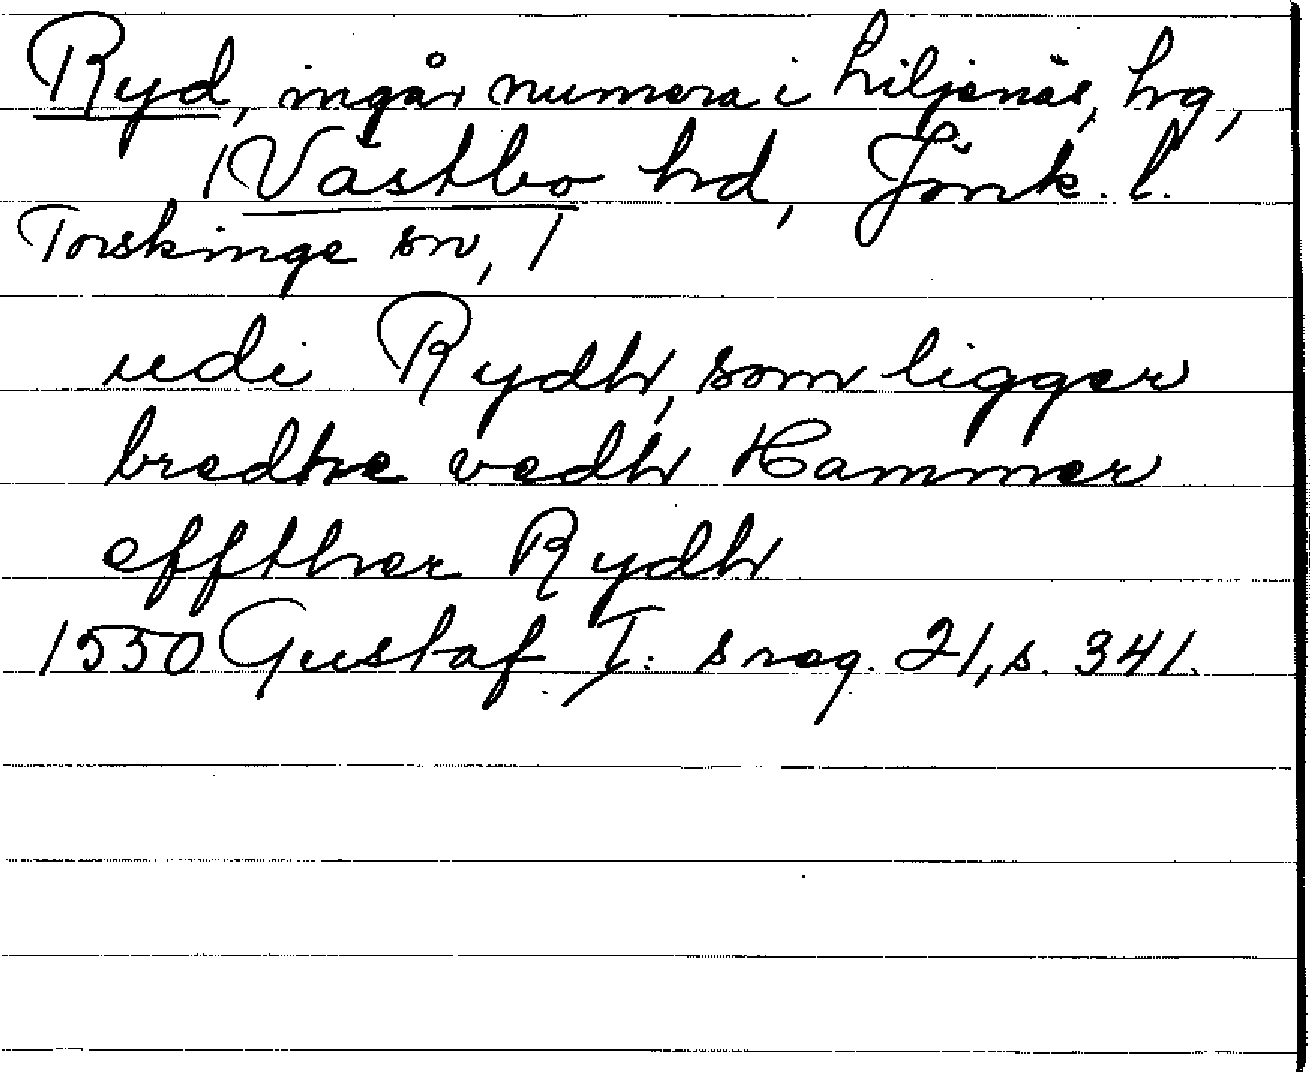 Ryd, ingår numera i Liljenäs, hg,
/Västbo hd, Jönk. l.
Torskinge sn, /
udi Rydh, som ligger
bredhe vedh Hammer
effther Rydh
1550 Gustaf I:s reg. 21, s. 341.